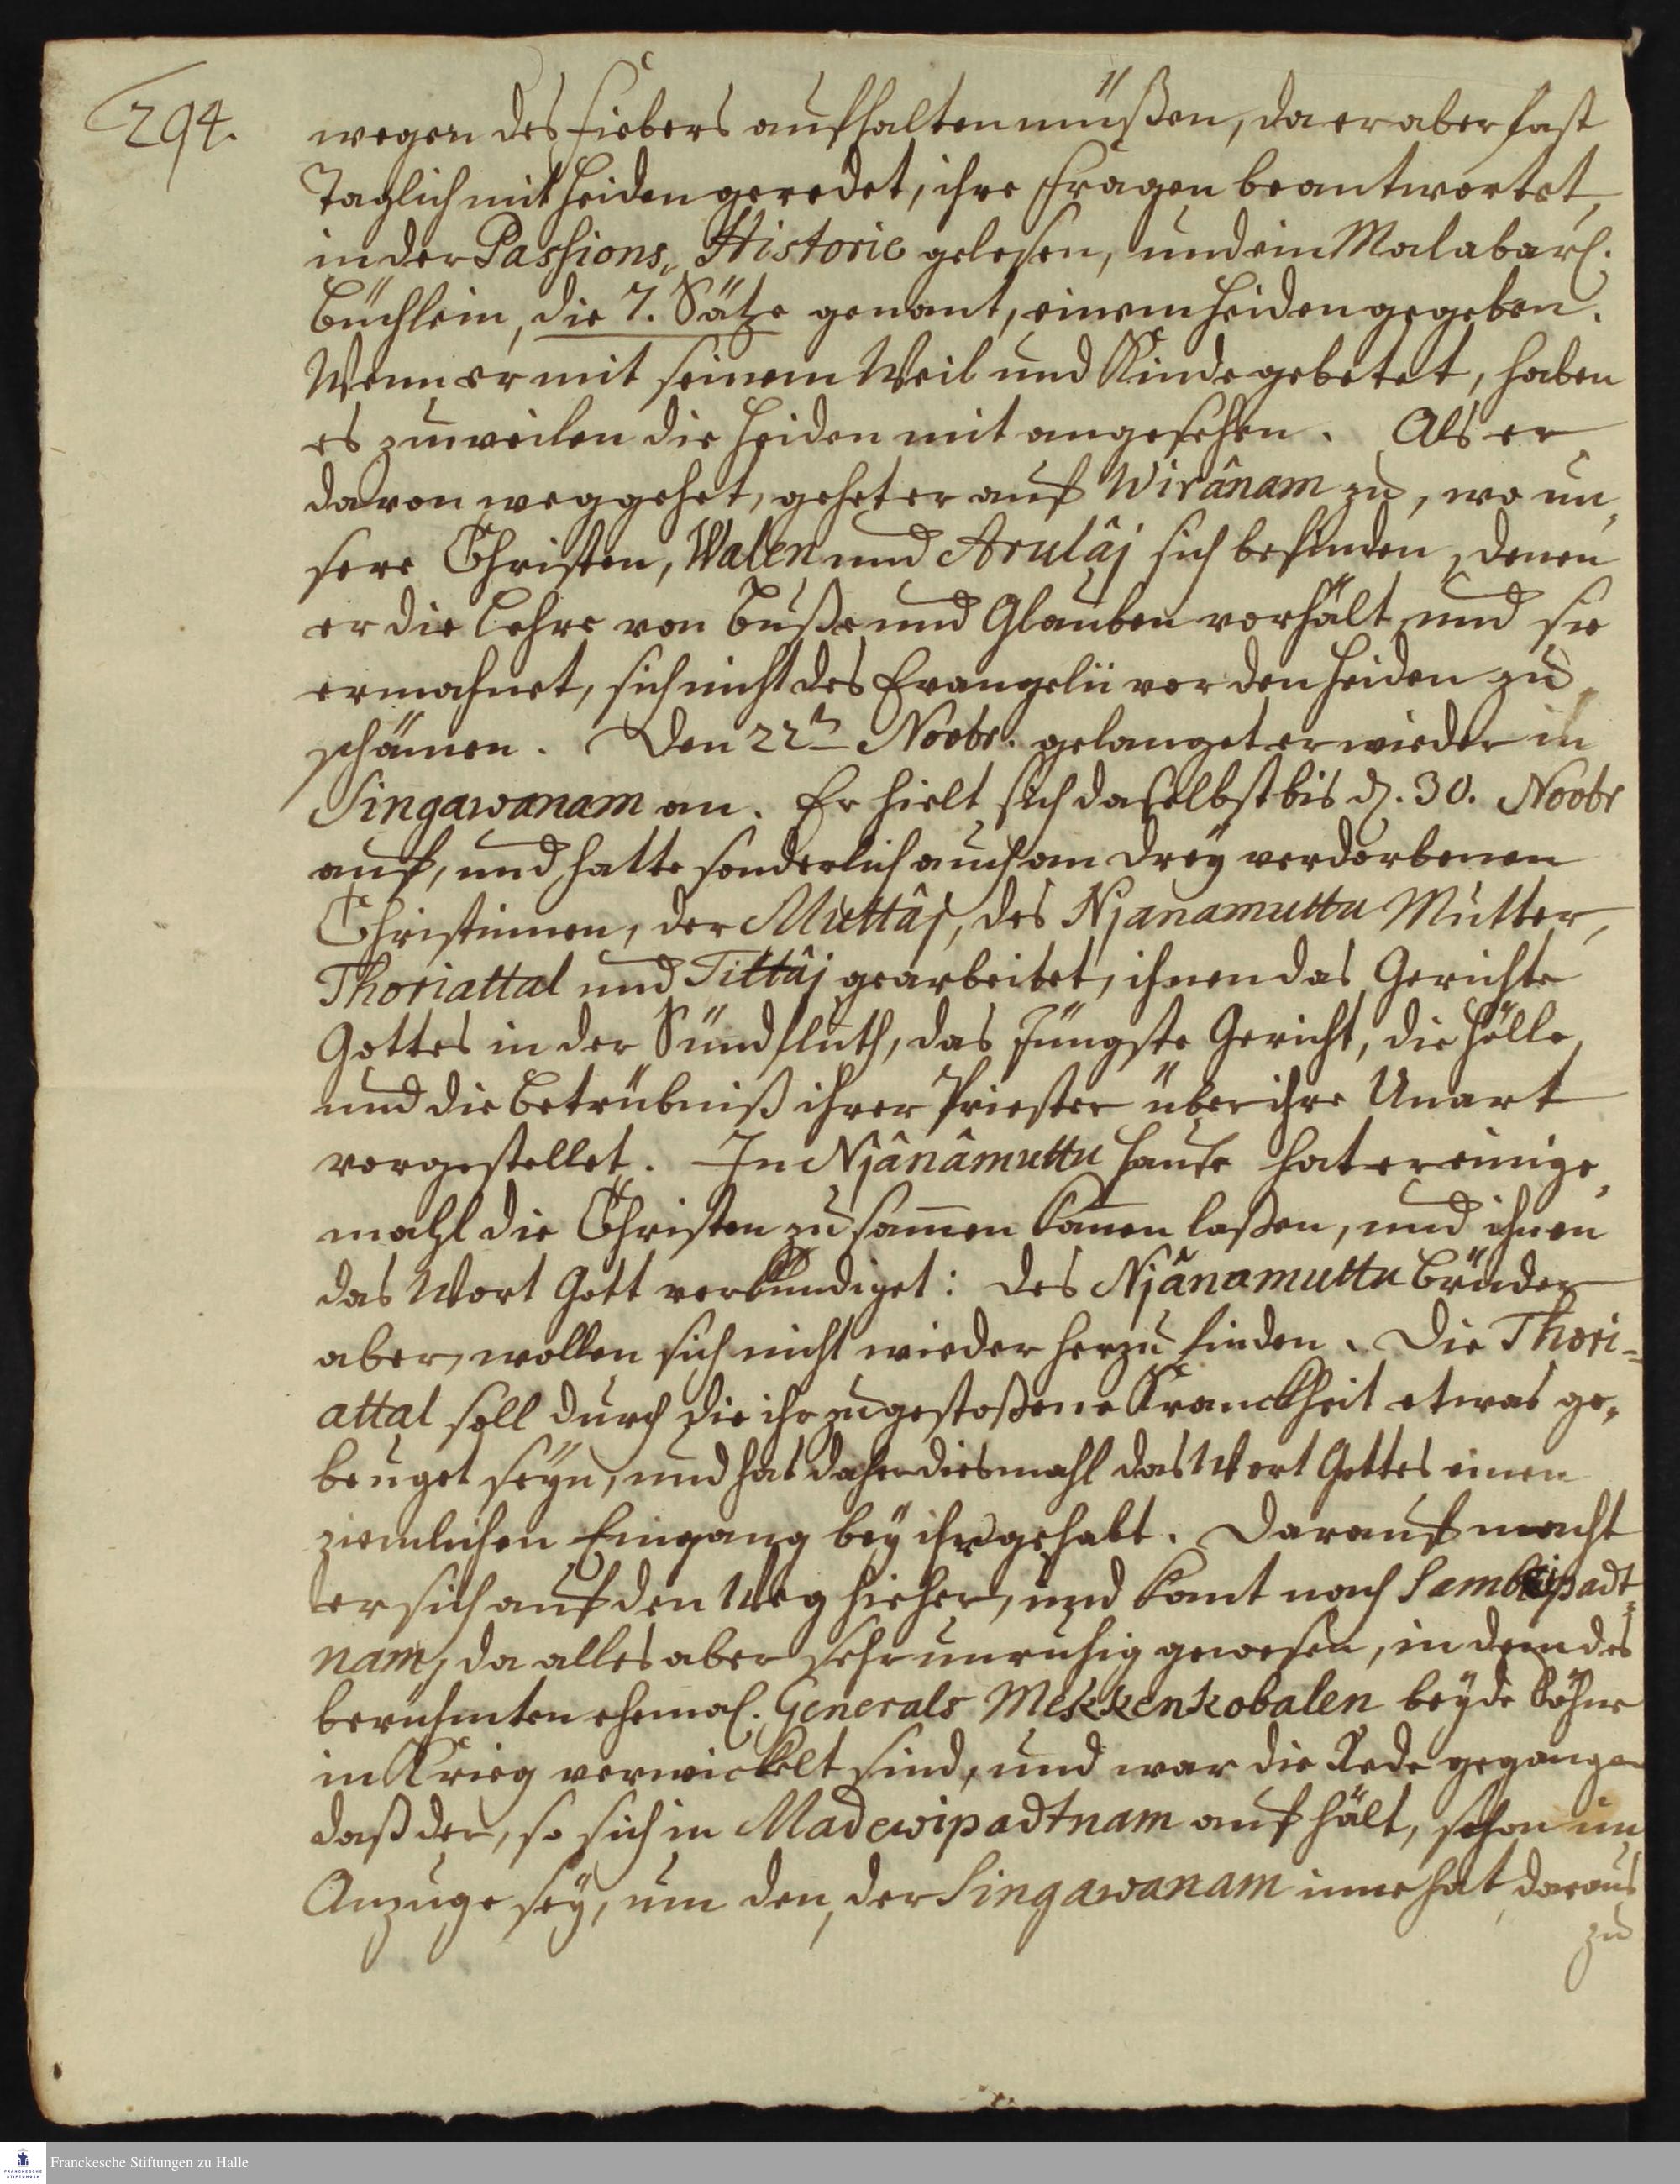 294.
wegen des Fiebers aufhalten müßen, da er aber fast
Taglich mit Heiden geredet, ihre Fragen beantwortet,
in der Passions„ Historie gelesen, und ein Malabarl.
Büchlein, die 7. Sätze genant, einem Heiden gegeben.
Wenn er mit seinem Weib und Kinde gebetet, haben
es zuweilen die Heiden mit angesehen. Als er
davon weggehet, gehet er auf Wirânam zu, wo un„
sere Christen, Walen und Arulâj sich befinden, denen
er die Lehre von Buße und Glauben vorhält, und sie
ermahnet, sich nicht des Evangelii vor den Heiden zu
schämen. Den 22n Novbr. gelanget er wieder in
Singawanam an. Er hielt sich daselbst bis d. 30. Novbr
auf, und hatte sonderlich auch an drey verdorbenen
Christinnen, der Muttâj, des Njanamuttu Mutter,
Thoriattal und Tittâj gearbeitet, ihnen das Gerichte
Gottes in der Sündfluth, das Jüngste Gericht, die Hölle,
und die Betrübniß ihrer Priester über ihre Unart
vorgestellet. In Njânâmuttu Hause hat er einige„
mahl die Christen zusammen komen laßen, und ihnen
das Wort Gott verkündiget: des Njânamuttu Brüder
aber, wollen sich nicht wieder herzu finden. Die Thori=
attal soll durch die ihr zugestoßene Kranckheit etwas ge„
beuget seyn, und hat daher diesmahl das Wort Gottes einen
ziemlichen Eingang bey ihr gehabt. Darauf macht
er sich auf den Weg hieher, und komt nach Sambipadt=
nam, da alles aber sehr unruhig gewesen, in dem des
berühmten ehemal. Generals Mekkenkobalen beyde Söhne
in Krieg verwickelt sind, und war die Rede gegangen
daß der, so sich in Madewipadtnam aufhält, schon im
Anzuge sey, um den, der Singawanam inne hat, daraus
zu
Franckesche Stiftungen zu Halle